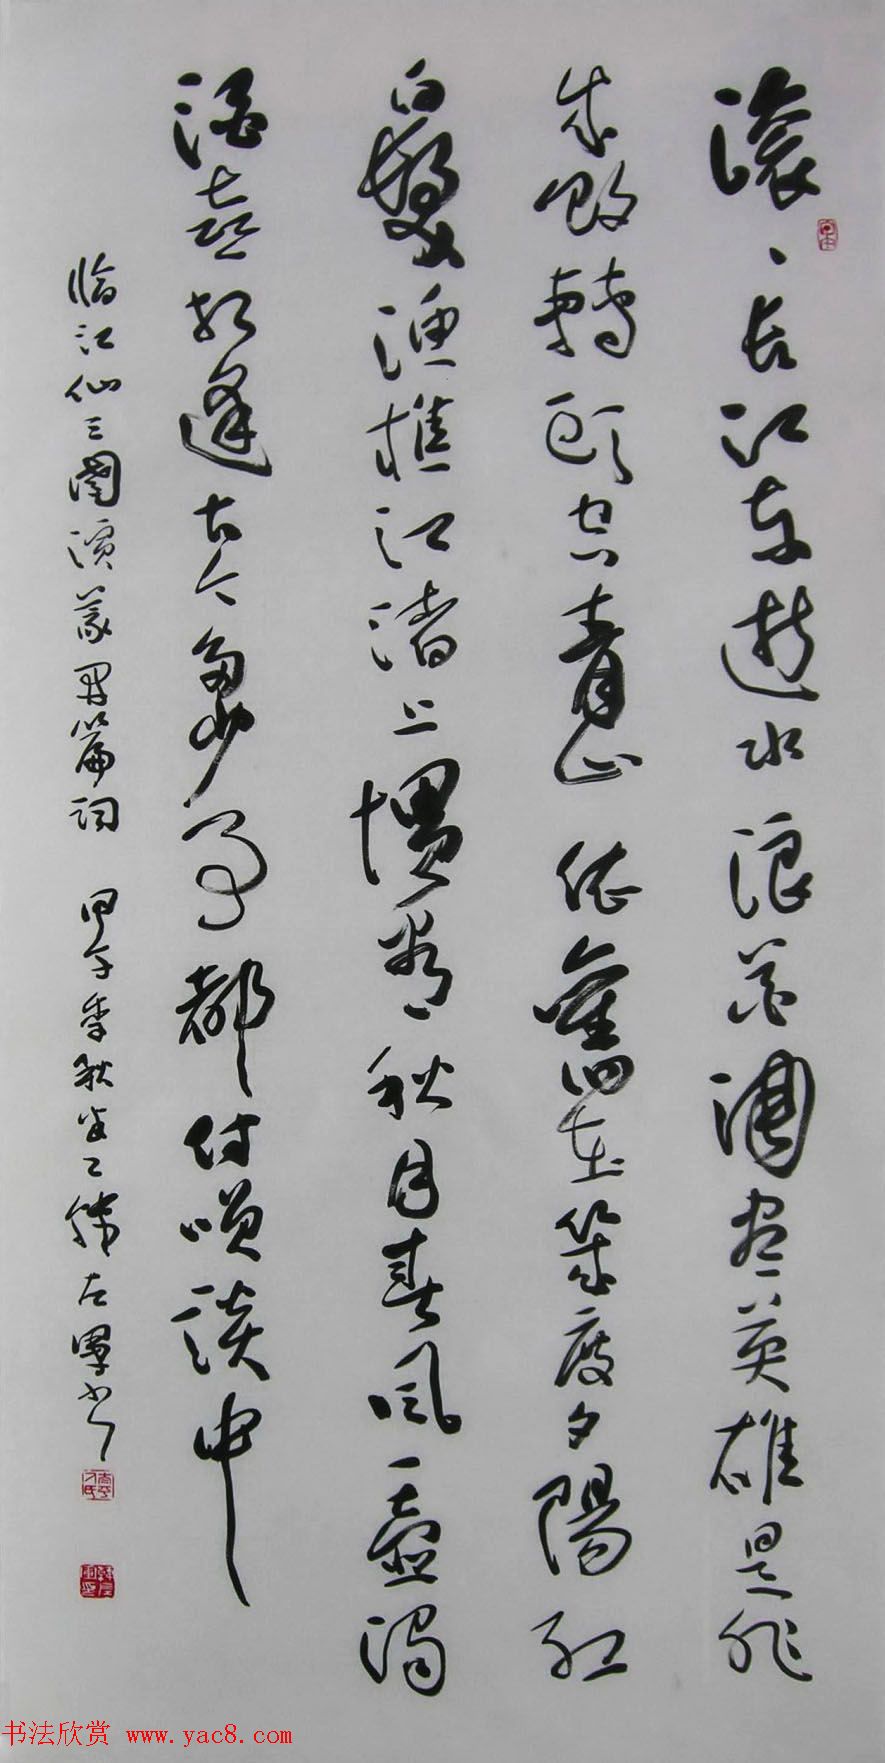 滚、长江东逝水浪花淘尽英雄是非
成败转头空青山依旧在几度夕阳红
白髮渔樵江渚上惯看秋月春风一壶浊
酒喜相逢古今多少事都付笑谈中
临江仙三国演义开篇词 甲午季秋
书法欣赏 www.yac8.com